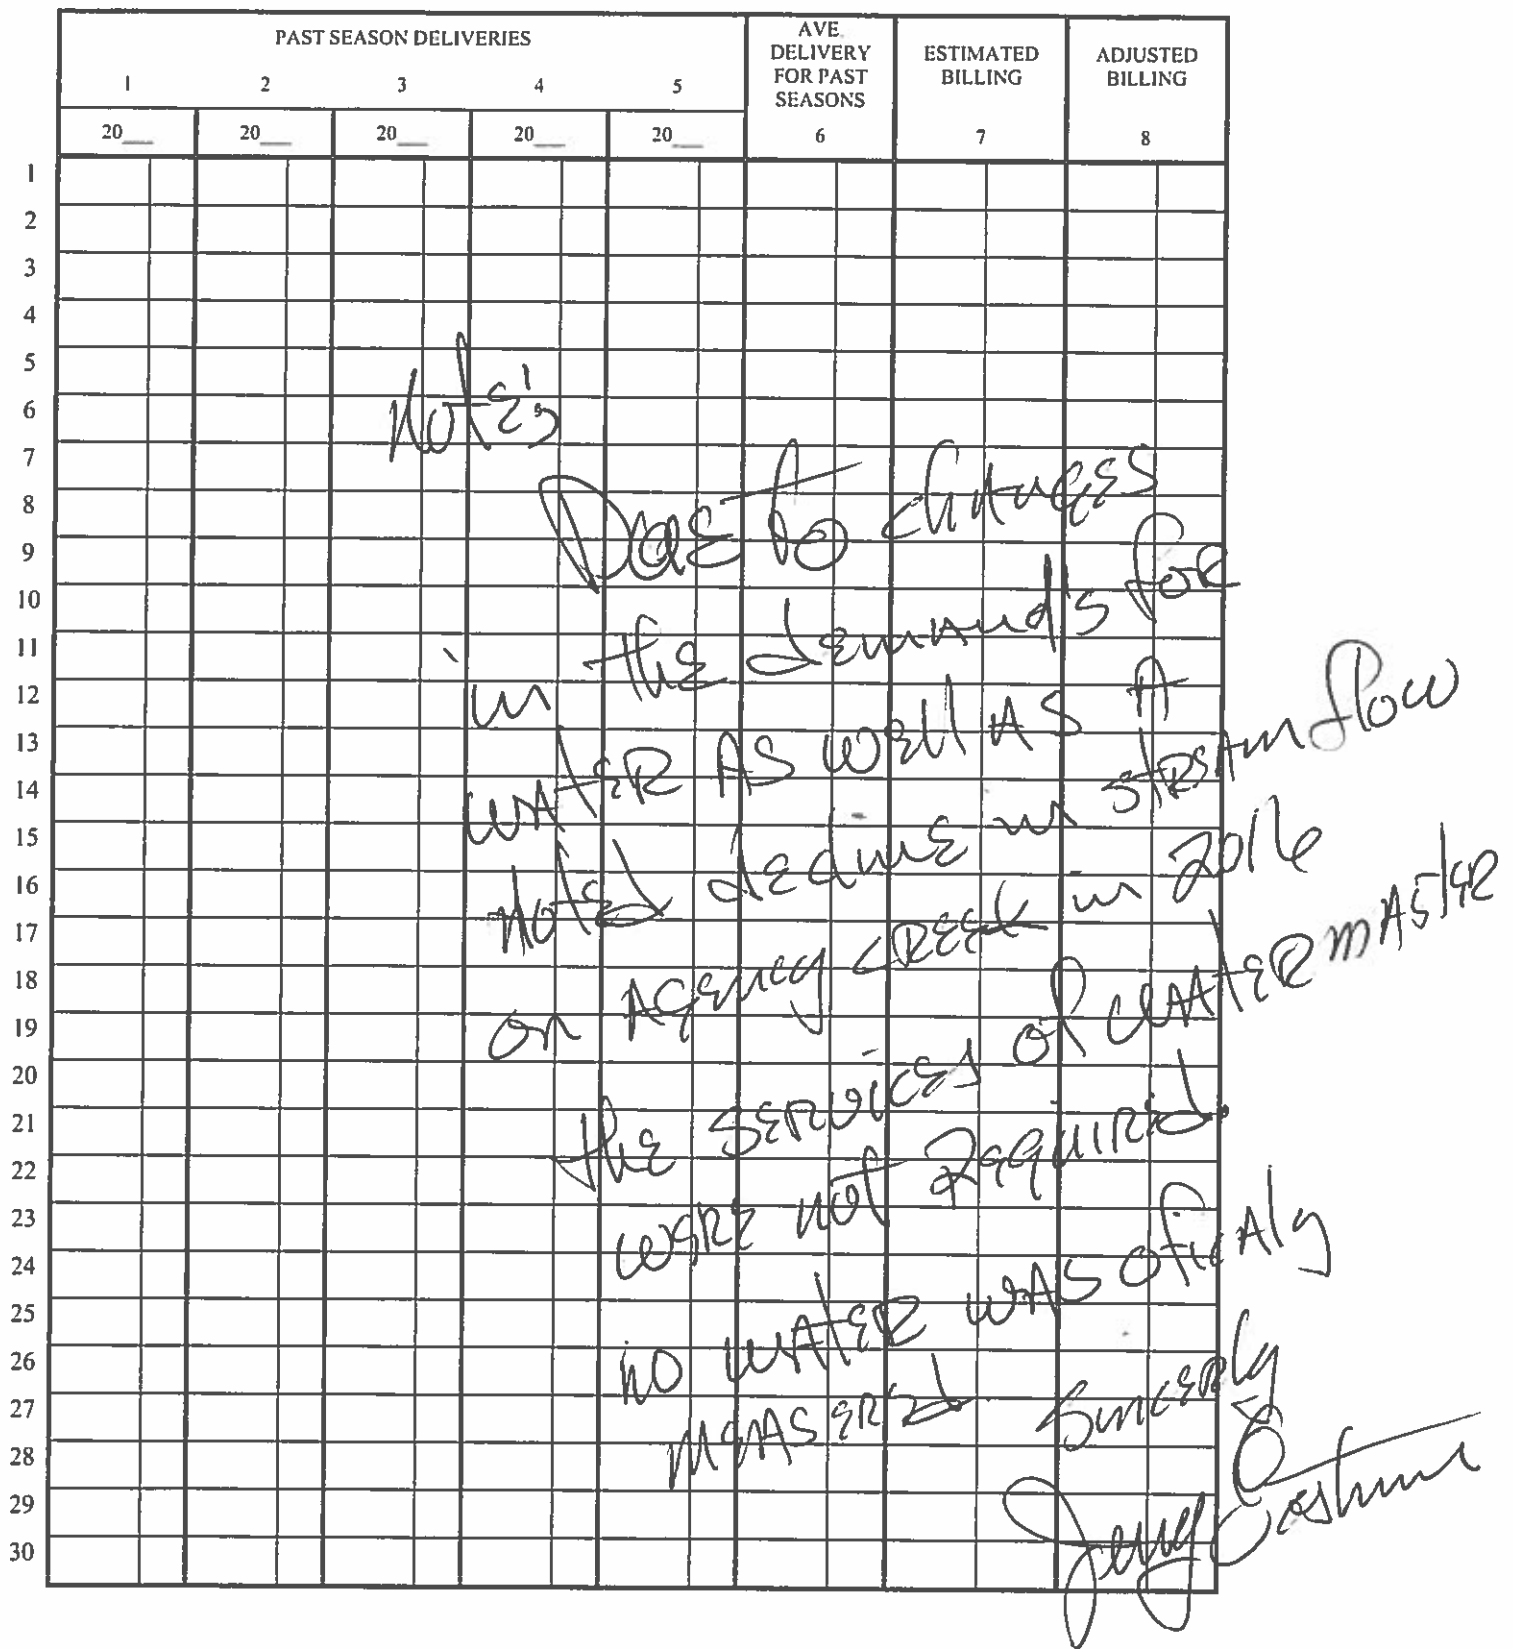 PAST SEASON DELIVERIES
1 2 3 4 5
20__ 20__ 20__ 20__ 20__
AVE.
DELIVERY
FOR PAST
SEASONS
6
ESTIMATED
BILLING
7
ADJUSTED
BILLING
8
1
2
3
4
5
6
7
8
9
10
11
12
13
14
15
16
17
18
19
20
21
22
23
24
25
26
27
28
29
30
Note's
Due to changes
in the demand's for
water as well as a
noted decline in streamflow
on Agency Creek in 2016
the services of watermaster
were not requirid.
no water was oficaly
measered
Sincerly
Jerry